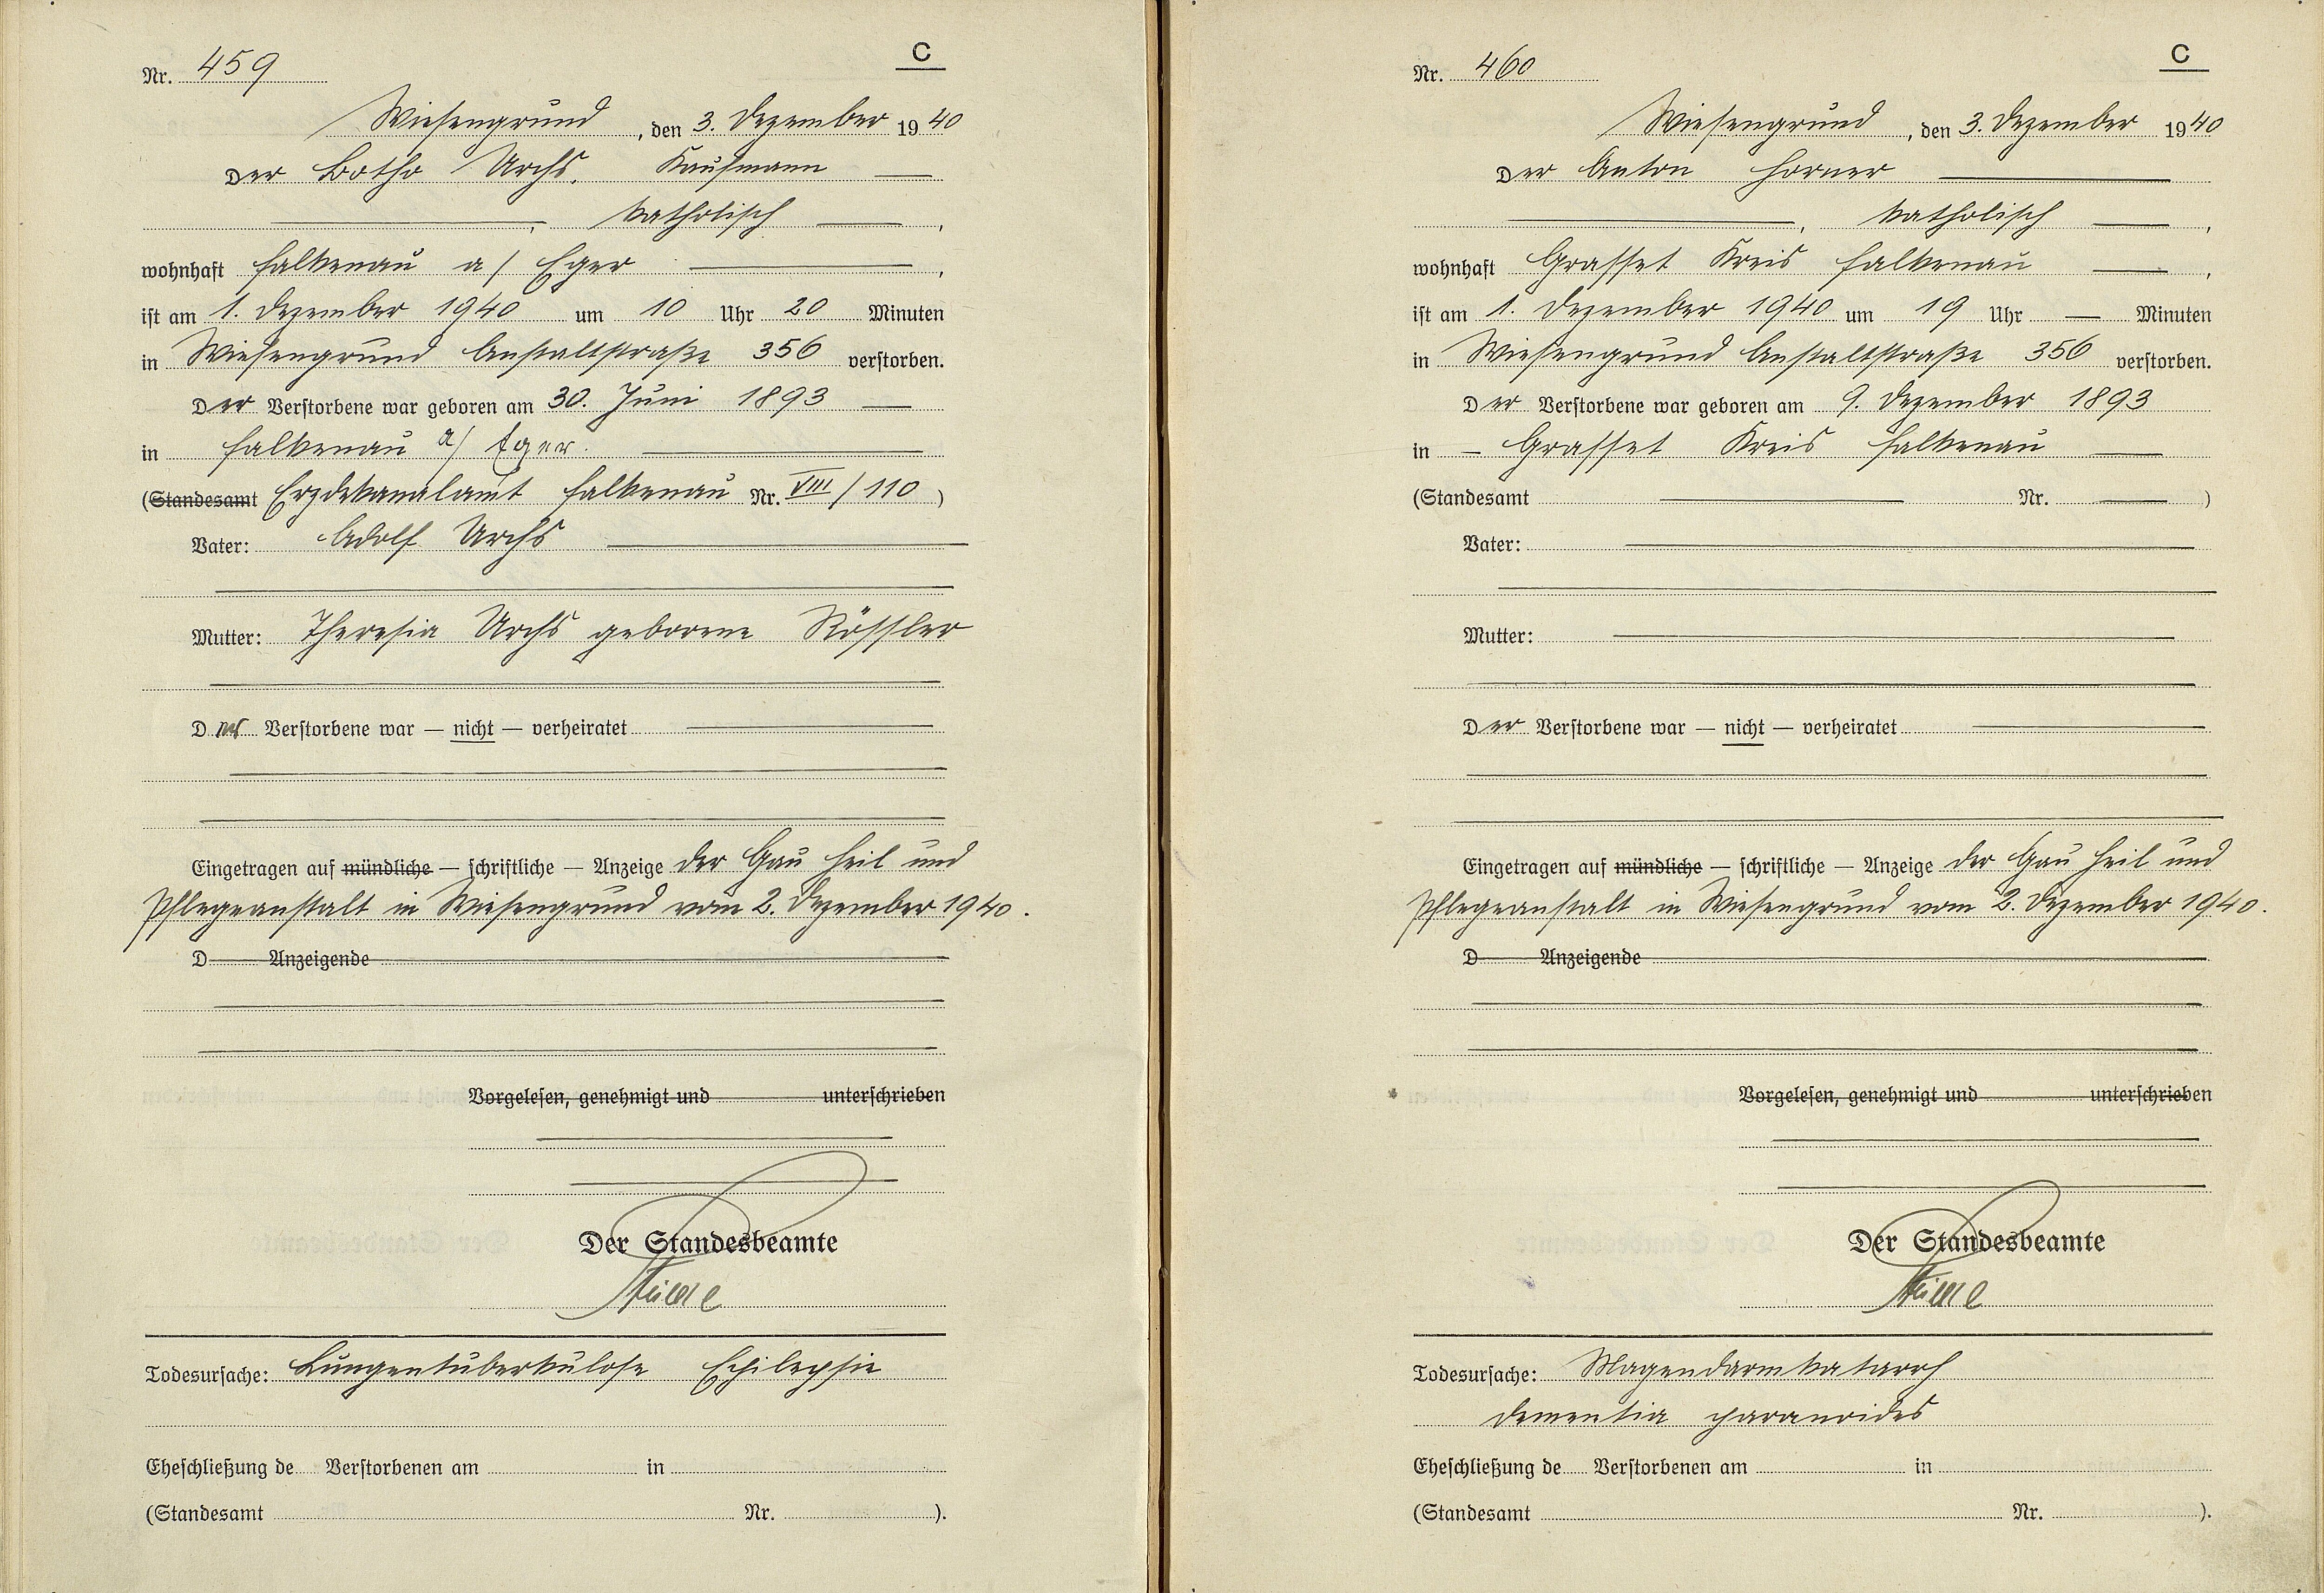 C
Nr. 459
Wiesengrund, den 3. Dezember 1940
Der Botho Urchs, Kaufmann
, katholisch ,
wohnhaft Falkenau a/ Eger ,
ist am 1. Dezember 1940 um 10 Uhr 20 Minuten
in Wiesengrund Anstaltstraße 356 verstorben.
Der Verstorbene war geboren am 30. Juni 1893
in Falkenau a/ Eger.
(Standesamt Erzdekanalamt Falkenau Nr. VIII/110)
Vater: Adolf Urchs
Mutter: Theresia Urchs geborene Rössler
Der Verstorbene war — nicht — verheiratet
Eingetragen auf mündliche — schriftliche — Anzeige der Gau Heil und
Pflegeanstalt in Wiesengrund vom 2. Dezember 1940.
D Anzeigende
Vorgelesen, genehmigt und unterschrieben
Der Standesbeamte
Todesursache: Lungentuberkulose Epilepsie
Eheschließung de Verstorbenen am in
(Standesamt Nr. ).
C
Nr. 460
Wiesengrund, den 3. Dezember 1940
Der Anton Horner
, katholisch ,
wohnhaft Grasset Kreis Falkenau ,
ist am 1. Dezember 1940 um 19 Uhr — Minuten
in Wiesengrund Anstaltstraße 356 verstorben.
Der Verstorbene war geboren am 9. Dezember 1893
in – Grasset Kreis Falkenau
(Standesamt Nr. )
Vater:
Mutter:
Der Verstorbene war — nicht — verheiratet
Eingetragen auf mündliche — schriftliche — Anzeige der Gau Heil und
Pflegeanstalt in Wiesengrund vom 2. Dezember 1940.
D Anzeigende
Vorgelesen, genehmigt und unterschrieben
Der Standesbeamte
Todesursache: Magendarmkatarrh
Dementia paranoides
Eheschließung de Verstorbenen am in
(Standesamt Nr. ).